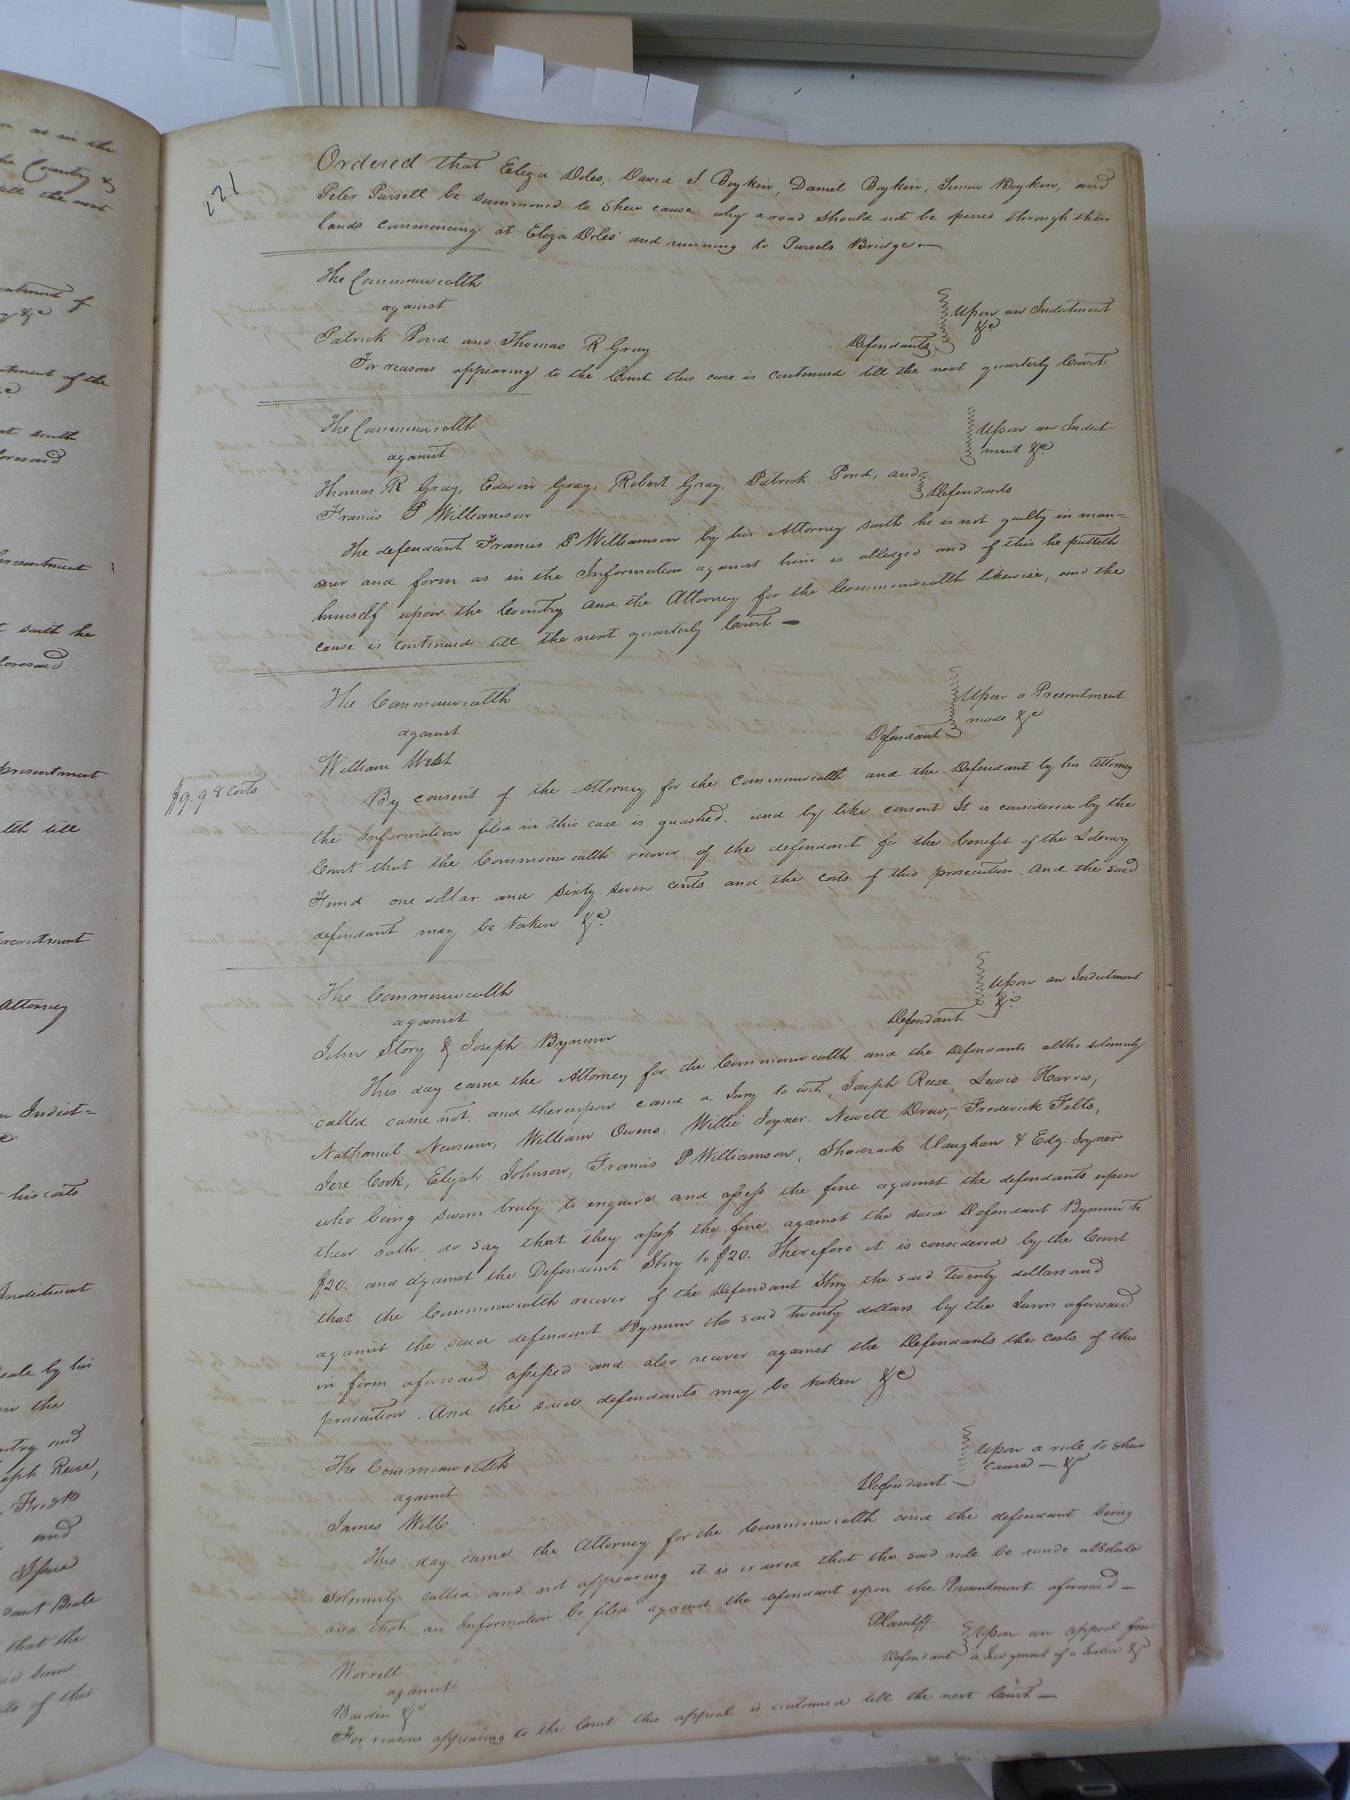 221
Ordered that Eliza Doles, David J Boykin, Daniel Boykin, Simon Boykin, and
Peter Pursell be summoned to Shew cause why a road should not be opened through their
lands commencing at Eliza Doles' and running to Pursels Bridge
The Commonwealth
against
Patrick Pond and Thomas R Gray
Defendants
Upon an Indictment
&c
For reasons appearing to the Court this case is continued till the next quarterly Court
The Commonwealth
against
Thomas R Gray, Edwin Gray, Robert Gray, Patrick Pond, and
Francis P Williamson
Defendants
Upon an Indict-
ment &c
The defendant Francis P Williamson by his Attorney saith he is not guilty in man=
ner and form as in the Information against him is alledged and of this he putteth
himself upon the Country and the Attorney for the Commonwealth likewise, and the
cause is continued till the next quarterly Court
The Commonwealth
against
William West
Defendant
Upon a Presentment
made &c
$9.98 Costs
By consent of the Attorney for the Commonwealth and the Defendant by his Attorney
the Information filed in this case is quashed. and by like consent It is considered by the
Court that the Commonwealth recover of the defendant for the benefit of the Literary
Fund one dollar and Sixty Seven cents and the costs of this prosecution. And the said
defendant may be taken &c.
The Commonwealth
against
John Story & Joseph Bynum
Defendant
Upon an Indictment
&c
This day came the Attorney for the Commonwealth and the Defendants altho solemnly
called came not. and thereupon came a Jury to wit, Joseph Reese, Lewis Harris,
Nathaniel Newsum, William Owens. Willie Joyner. Newell Drew, Frederick Felts,
Jere Cook, Elijah Johnson, Francis P Williamson, Shadrack Vaughan & Edg. Joyner
who being sworn truly to enquire and assess the fine against the defendants upon
their oath do say that they assess the fine against the said Defendant Bynum to
$20. and against the Defendant Story to $20. Therefore it is considered by the Court
that the Commonwealth recover of the Defendant Story the said Twenty dollars and
against the said defendant Bynum the said twenty dollars by the Jurors aforesaid
in form aforesaid assessed and also recover against the Defendants the costs of this
prosecution. And the said defendants may be taken &c
The Commonwealth
against
James Wills
Defendant
Upon a rule to Shew
cause — &c
This day came the Attorney for the Commonwealth and the defendant being
solemnly called and not appearing. it is ordered that the said rule be made absolute
and that an Information be filed against the defendant upon the Presentment aforesaid —
Worrell
against
Barden &c
Plaintiff
Defendant
Upon an appeal from
a Judgment of a Justice &c
For reasons appearing to the Court this appeal is continued till the next Court —